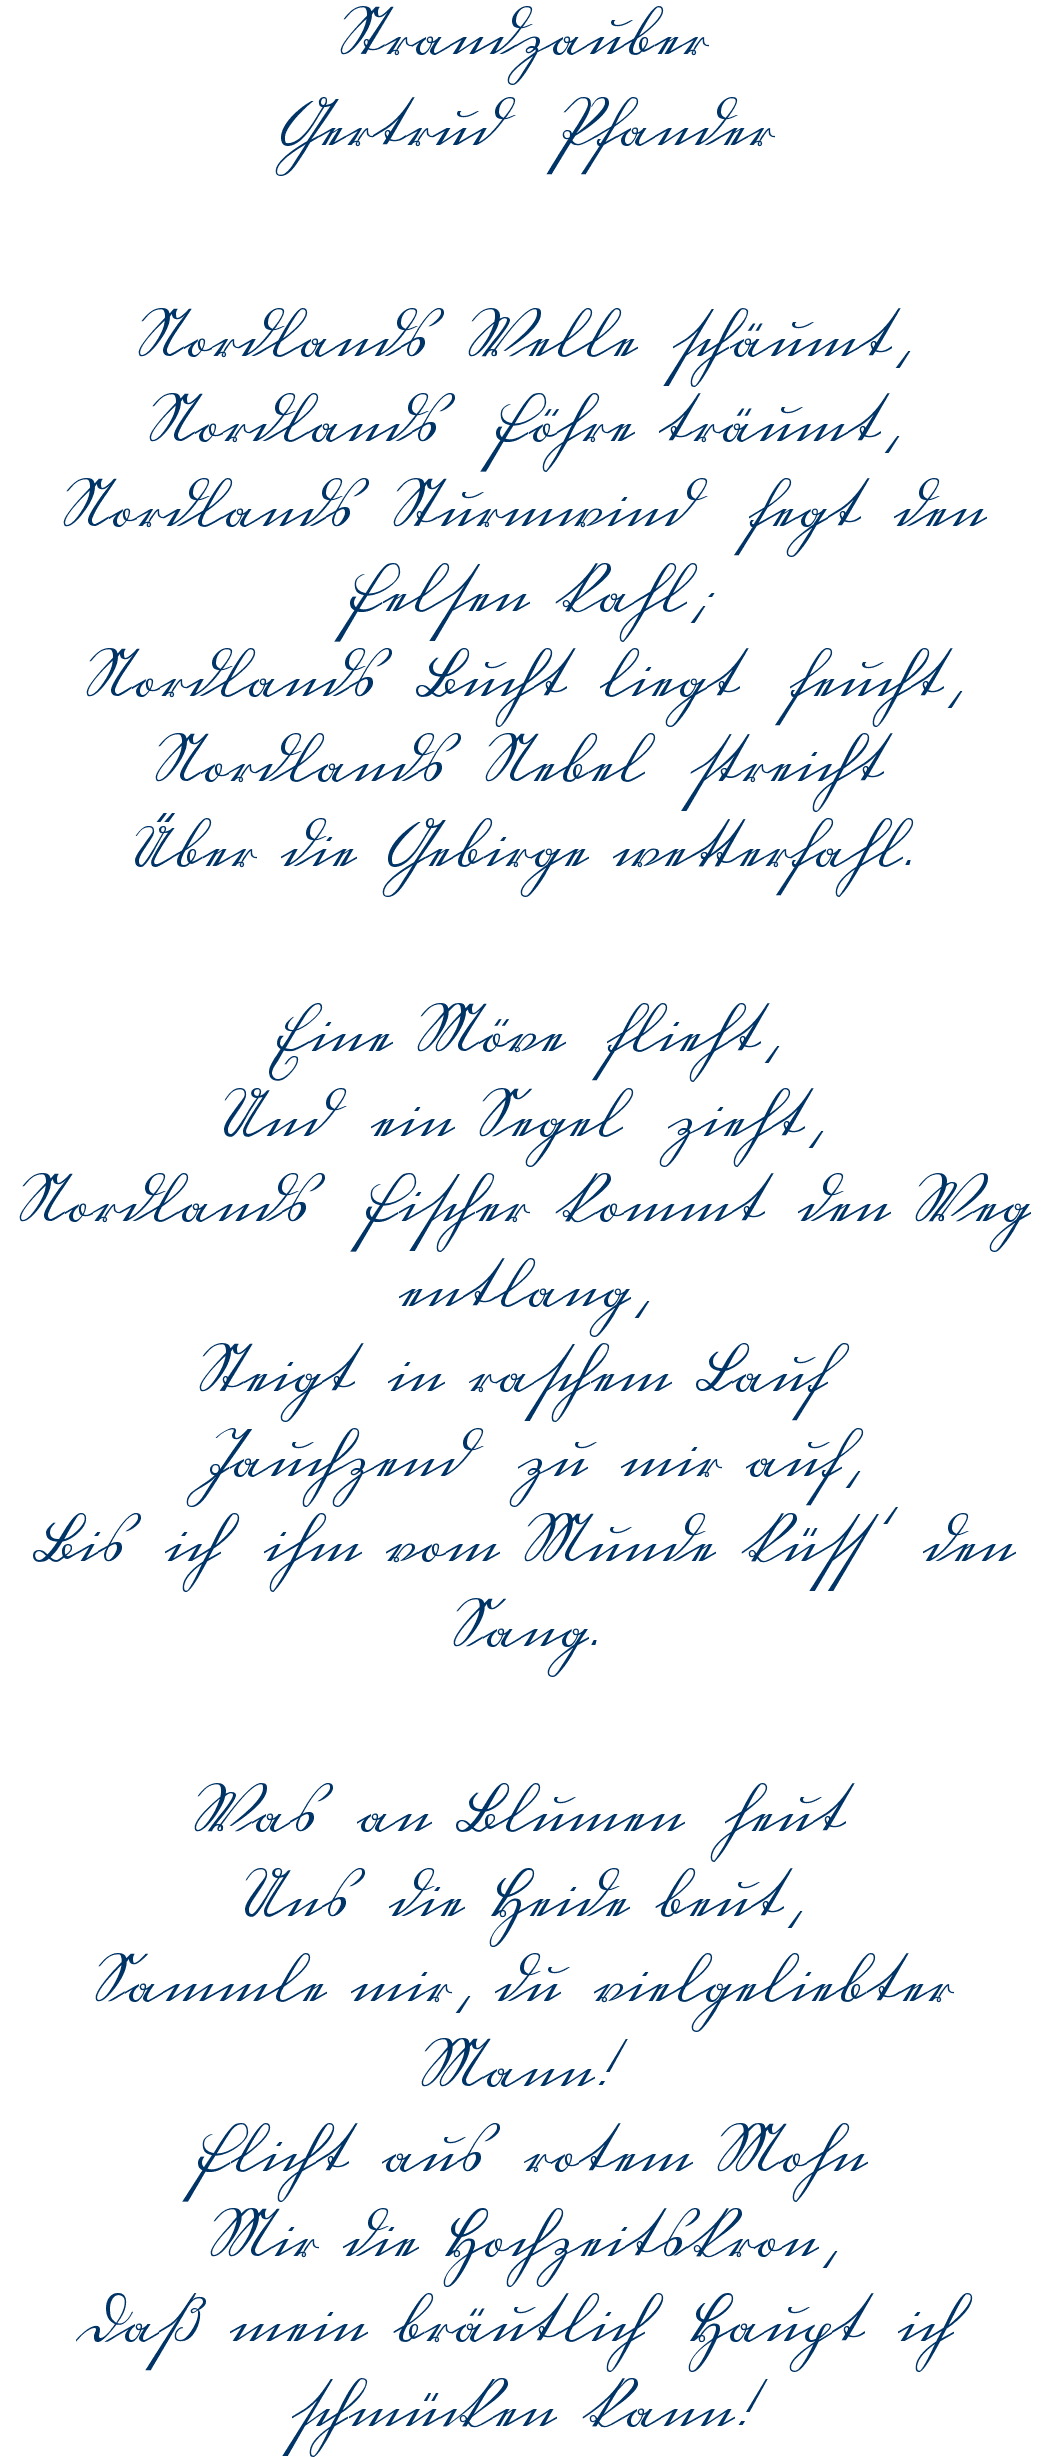 Strandzauber
Gertrud Pfander
Nordlands Welle schäumt,
Nordlands Föhre träumt,
Nordlands Sturmwind fegt den
Felsen kahl;
Nordlands Bucht liegt feucht,
Nordlands Nebel streicht
Über die Gebirge wetterfahl.
Eine Möve flieht,
Und ein Segel zieht,
Nordlands Fischer kommt den Weg
entlang,
Steigt in raschem Lauf
Jauchzend zu mir auf,
Bis ich ihm vom Munde küss' den
Sang.
Was an Blumen heut
Uns die Heide beut,
Sammle mir, du vielgeliebter
Mann!
Flicht aus rotem Mohn
Mir die Hochzeitskron,
Daß mein bräutlich Haupt ich
schmücken kann!